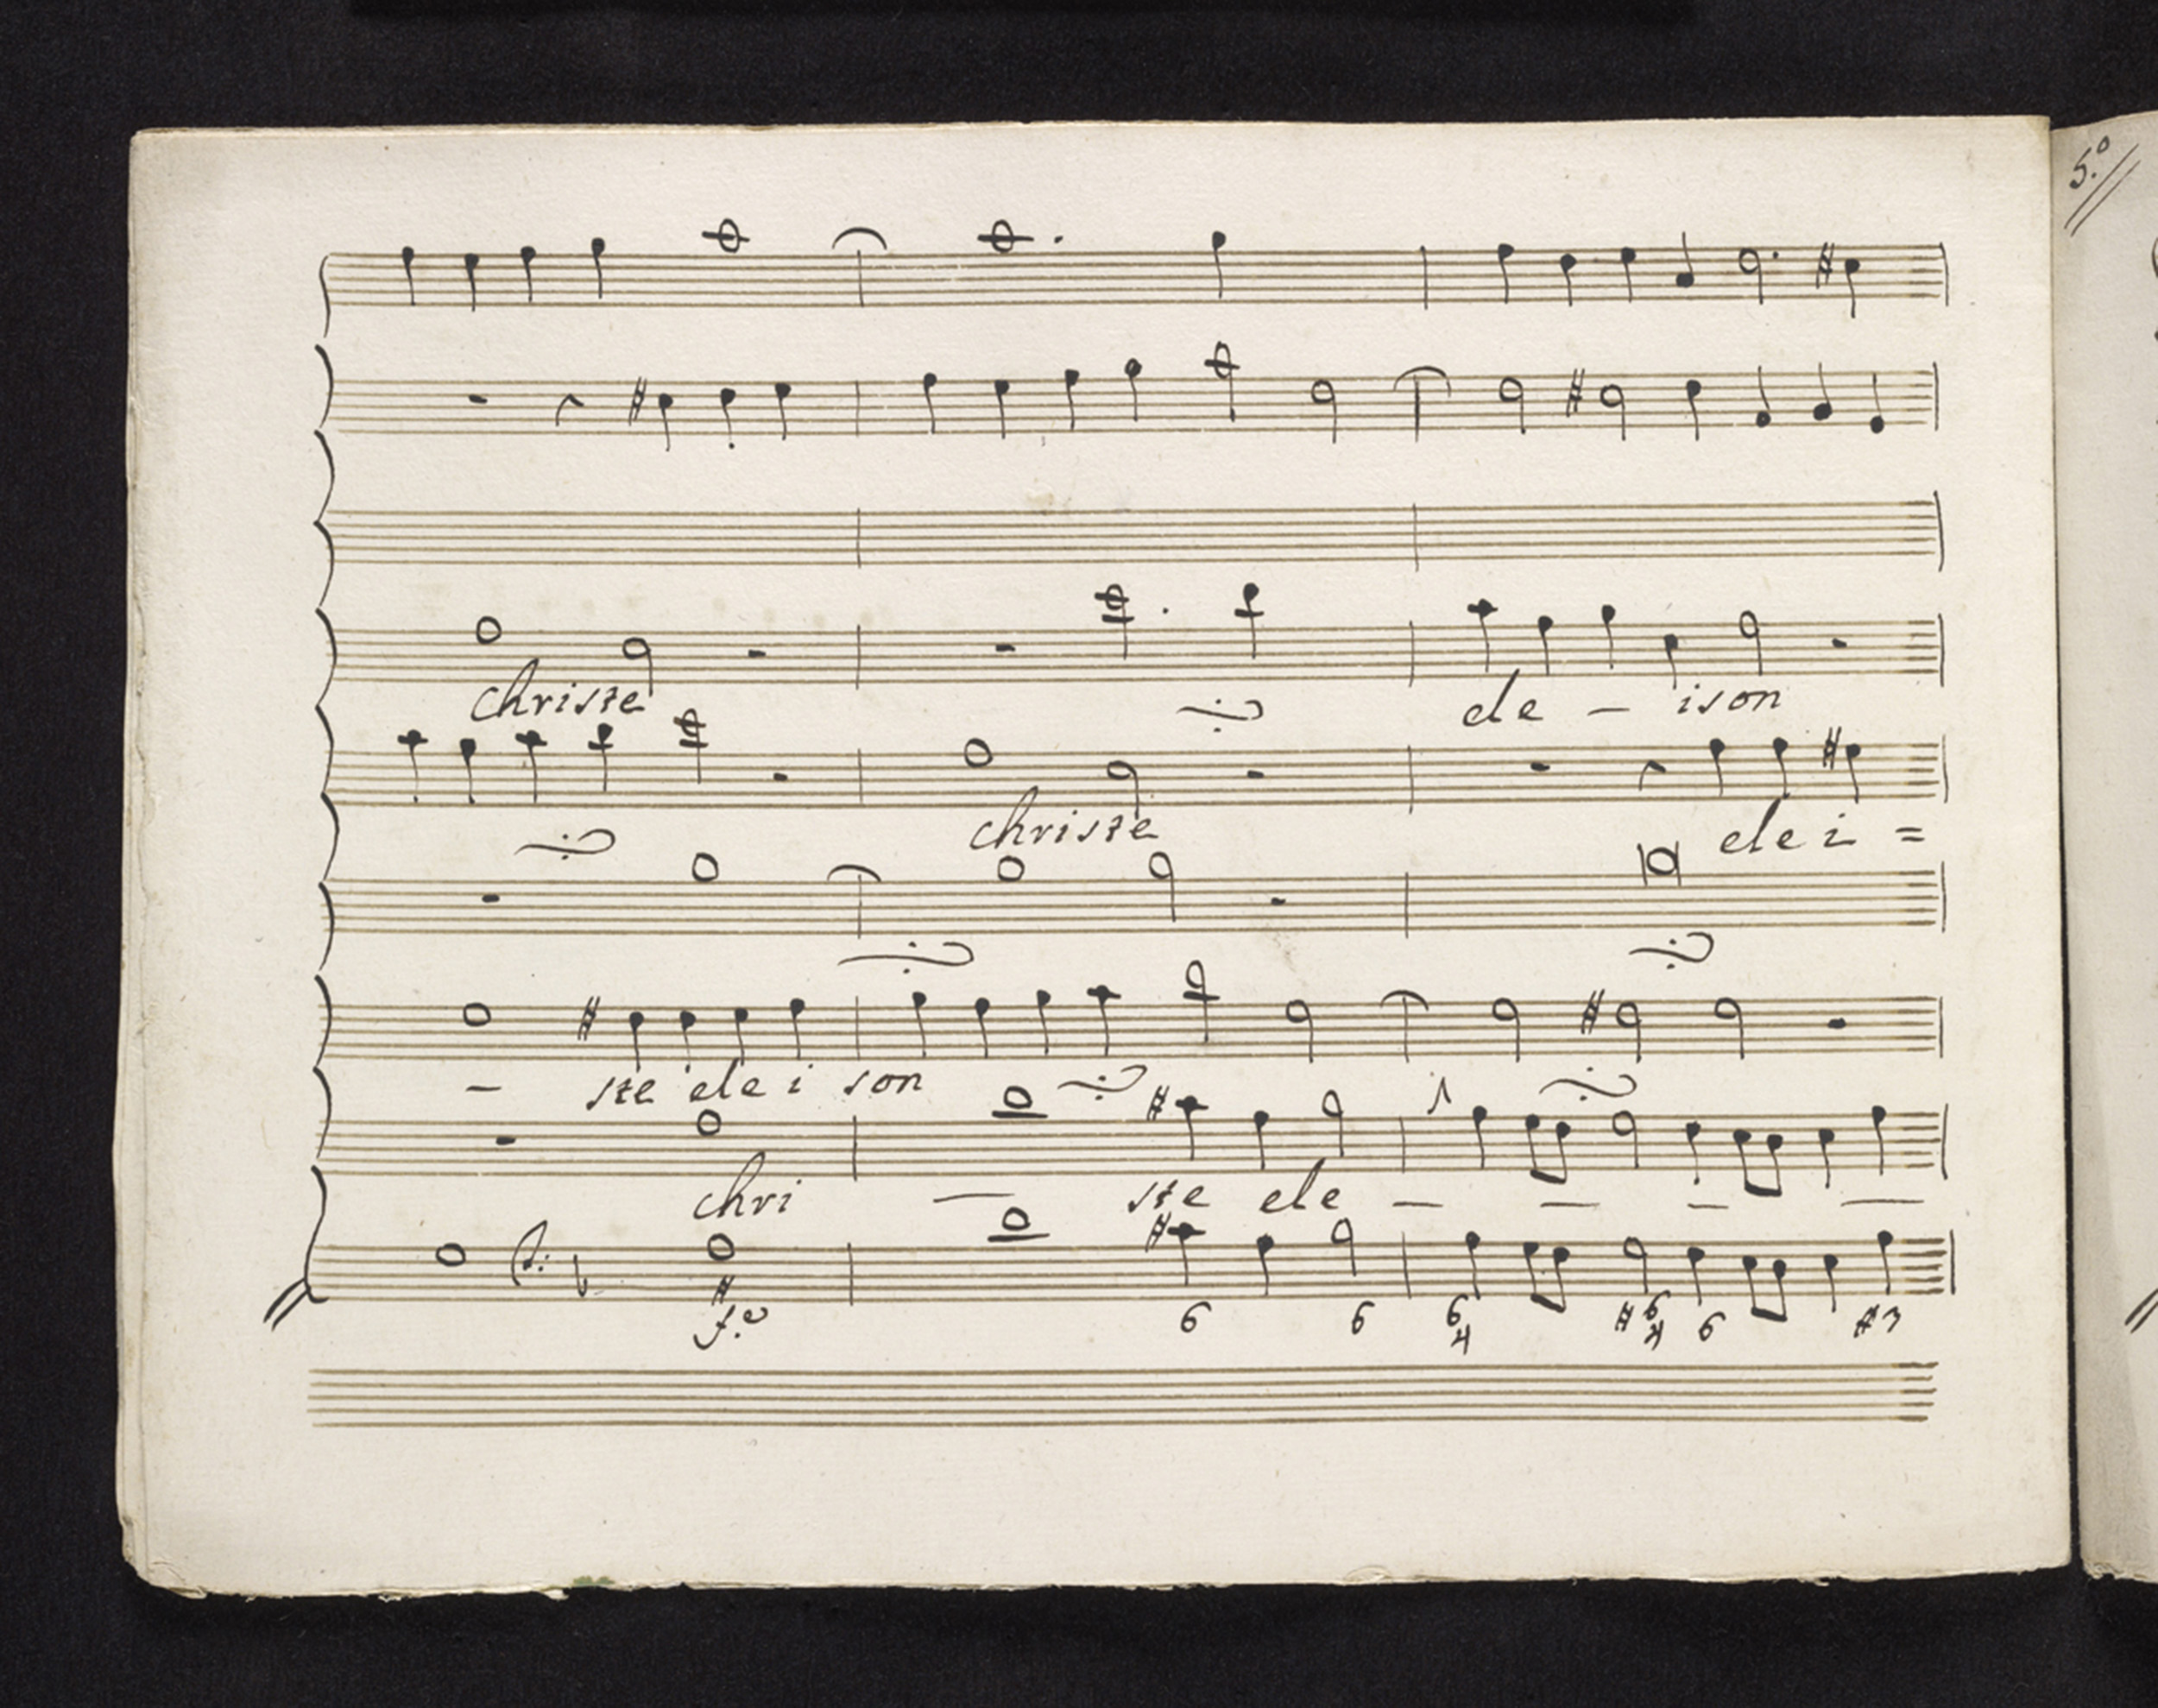 5.o
christe
ele - ison
christe
elei =
- ste elei son
chri - ste ele - - - -
f.e
6 6 6 4 6 4 6 3